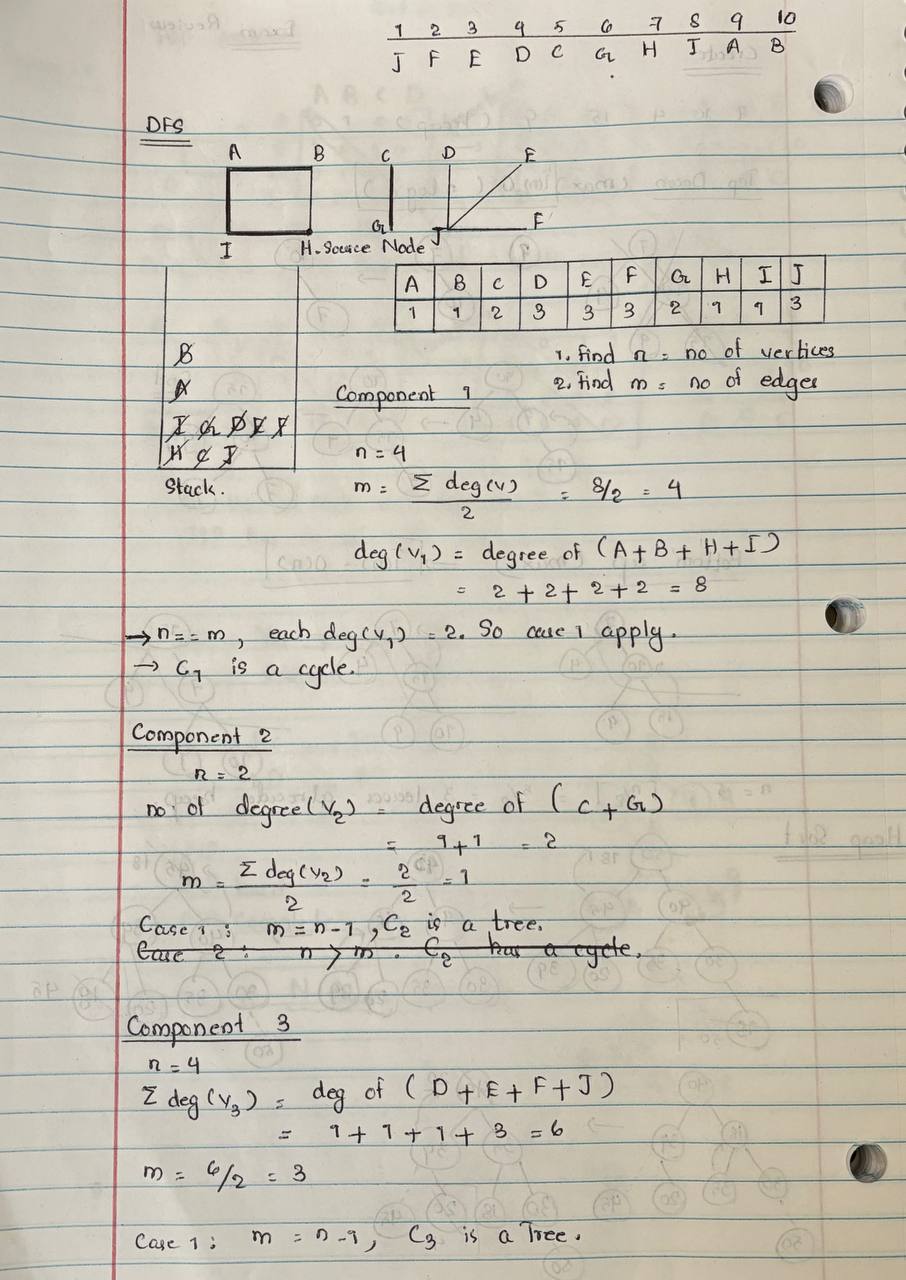 1 2 3 4 5 6 7 8 9 10
J F E D C G H I A B
DFS
A B C D E
I H-Source Node G J F
A B C D E F G H I J
1 1 2 3 3 3 2 1 1 3
1. find n = no of vertices
2. find m = no of edges
B
A
I G D E F
H C J
Stack.
Component 1
n = 4
m = Σ deg(v) / 2 = 8/2 = 4
deg(V1) = degree of (A+B+H+I)
= 2+2+2+2 = 8
→ n == m, each deg(V1) = 2. So case 1 apply.
→ C1 is a cycle.
Component 2
n = 2
no of degree(V2) = degree of (C+G)
= 1+1 = 2
m = Σ deg(V2) / 2 = 2/2 = 1
Case 1: m = n-1, C2 is a tree.
Case 2: n > m. C2 has a cycle.
Component 3
n = 4
Σ deg(V3) = deg of (D+E+F+J)
= 1+1+1+3 = 6
m = 6/2 = 3
Case 1: m = n-1, C3 is a Tree.